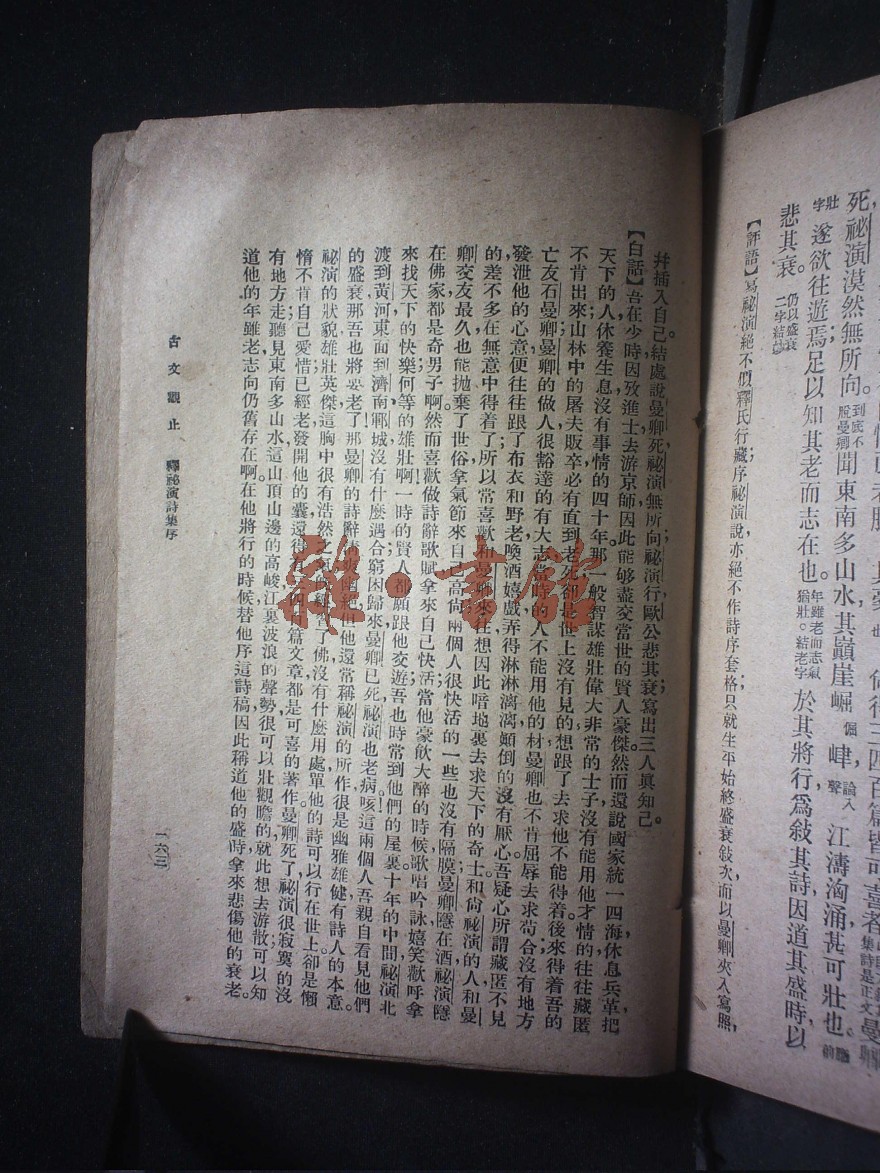 死祕演漠然無所向到底不脫曼卿聞東南多山水其巓崖崛倔峍論入聲江濤洶涌甚可壯也
壯字遂欲往遊焉足以知其老而志在也年雖老而志氣猶壯結老字於其將行爲敍其詩因道其盛時以
悲其衰仍以盛衰二字結
【評語】寫祕演絕不假釋氏行藏序祕演說亦絕不作詩序套格只就生平始終盛衰敍次而以曼卿夾入寫照
幷插入自己結處說曼卿死祕演無所向祕演行歐公悲其衰寫出三人眞知己
【白話】吾在少時因攷進士去游京師因此能够盡交當世的賢人豪傑然而還說國家統一四海休息兵革把
天下的人休養生息沒有事情的四十年那一般智謀雄壯偉大非常的士子沒有能用他才情的往往藏匿
不肯出來山林中的屠夫販卒必有直到老死卻是世上沒有見的想跟了去求他不能得着後來得着吾的
亡友石曼卿曼卿的做人很豁達的有大志當時的人不能用他的材曼卿也不肯屈辱去求苟合沒有地方
發泄他的心意便往往跟了布衣和野老喚酒嬉戲弄得淋淋漓漓顚倒的沒有厭心吾疑心所謂藏匿不見
的差不多在無意中得着了所以常喜歡和曼卿來往想因此暗地裏去求天下的奇士和尙祕演的人和曼
卿交友最久也能拋棄了世俗拿氣節來自己高尙兩個人很快活的一些也沒有隔膜曼卿隱在酒祕演隱
在佛家都是奇男子啊然而喜歡做詩辭歌賦拿來自己快活當他豪飲大醉的時候歌唱吟詠嬉笑歡呼拿
來找天下的快樂何等的雄壯啊一時的賢人都願跟他交遊吾也時常到他們的屋裏十年的中間祕演北
渡到黃河東面到濟南鄆城沒有什麼遇合窮困歸來曼卿已死祕演也老病咳這兩個人吾親自看見他們
的盛衰那吾也將要老了那曼卿的詩辭淸絕他還常稱祕演的所作很是幽雅雄健有詩人的本意
祕演的狀貌雄壯英傑這胸中很有浩然之氣了佛沒有什麼用處單他的詩可以行在世上卻是懶
惰不肯自己愛惜已經老發開他的囊還得篇文章都是可喜的著作曼卿死了祕演很寂寞的沒
有地方走聽見東南多山水這山頂山邊的高峻江裏波浪的聲勢很可以壯觀瞻的就此想去游散可以知
道他的年雖老志向仍舊存在啊在他將行的時候替他序這詩稿因此稱道他的盛時拿來悲傷他的衰老
古文觀止 釋祕演詩集序
一六三
雜·書館